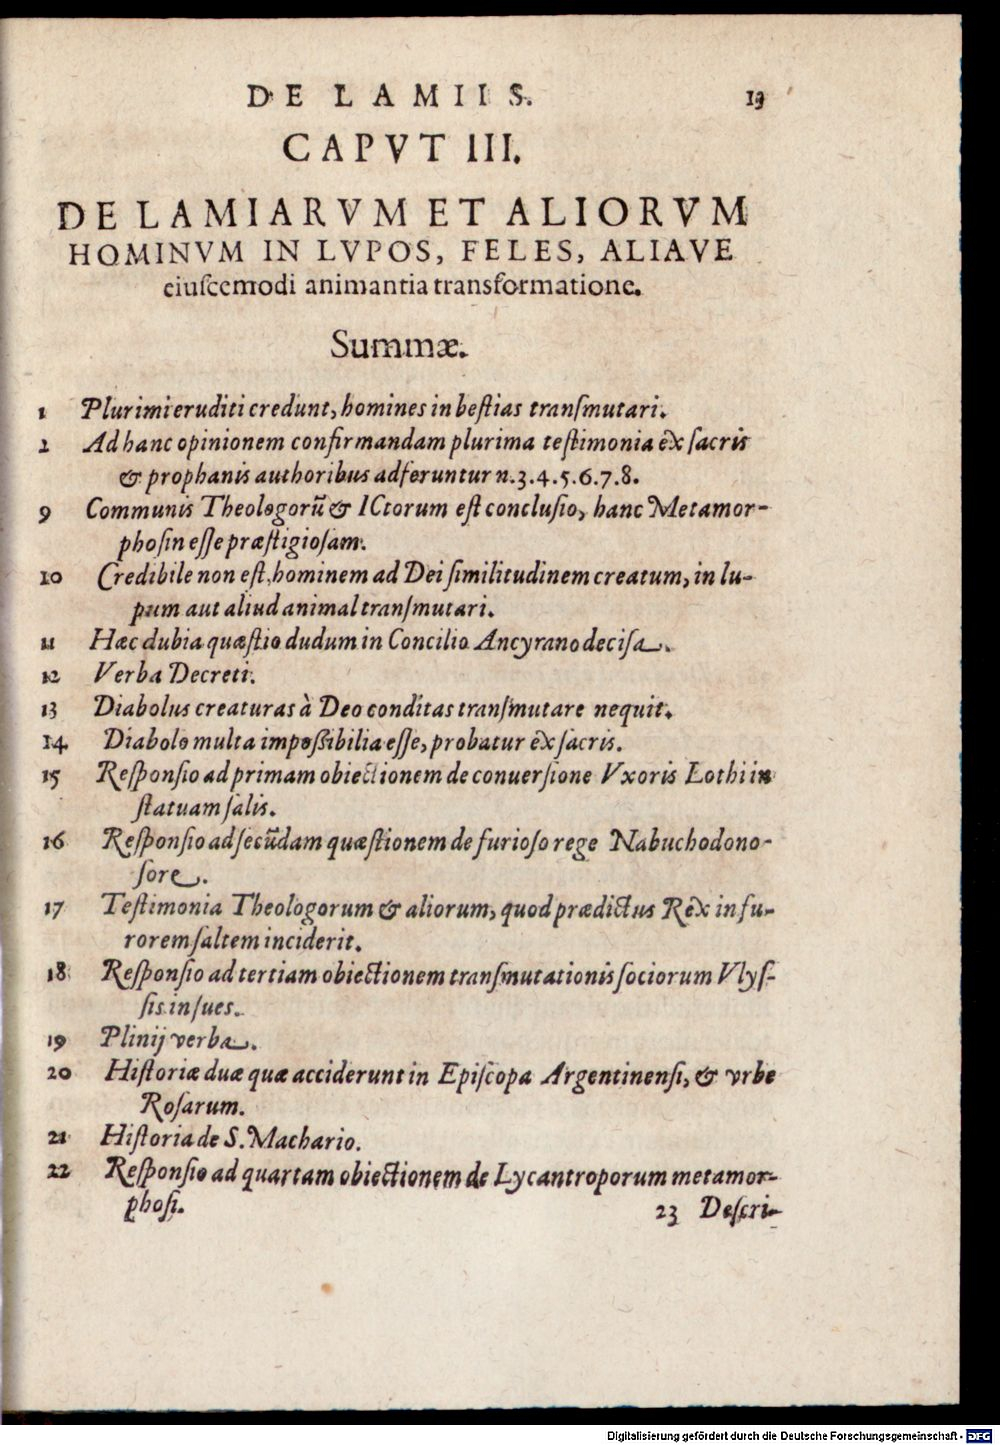 DE LAMIIS. 13
CAPVT III.
DE LAMIARVM ET ALIORVM
HOMINVM IN LVPOS, FELES, ALIAVE
eiuſcemodi animantia transformatione.
Summæ.
1 Plurimi eruditi credunt, homines in beſtias tranſmutari.
2 Ad hanc opinionem confirmandam plurima teſtimonia ex ſacris
& prophanis authoribus adferuntur n.3.4.5.6.7.8.
9 Communis Theologorũ & ICtorum eſt concluſio, hanc Metamor-
phoſin eſſe præſtigioſam.
10 Credibile non eſt, hominem ad Dei ſimilitudinem creatum, in lu-
pum aut aliud animal tranſmutari.
11 Hæc dubia quæſtio dudum in Concilio Ancyrano deciſa.
12 Verba Decreti.
13 Diabolus creaturas à Deo conditas tranſmutare nequit.
14 Diabolo multa impoſsibilia eſſe, probatur ex ſacris.
15 Reſponſio ad primam obiectionem de conuerſione Vxoris Lothi in
ſtatuam ſalis.
16 Reſponſio ad ſecũdam quæſtionem de furioſo rege Nabuchodono-
ſore.
17 Teſtimonia Theologorum & aliorum, quod prædictus Rex in fu-
rorem ſaltem inciderit.
18 Reſponſio ad tertiam obiectionem tranſmutationis ſociorum Vlyſ-
ſis in ſues.
19 Plinij verba.
20 Hiſtoriæ duæ quæ acciderunt in Epiſcopa Argentinenſi, & vrbe
Roſarum.
21 Hiſtoria de S. Machario.
22 Reſponſio ad quartam obiectionem de Lycantroporum metamor-
phoſi.
23 Deſcri-
Digitalisierung gefördert durch die Deutsche Forschungsgemeinschaft - DFG